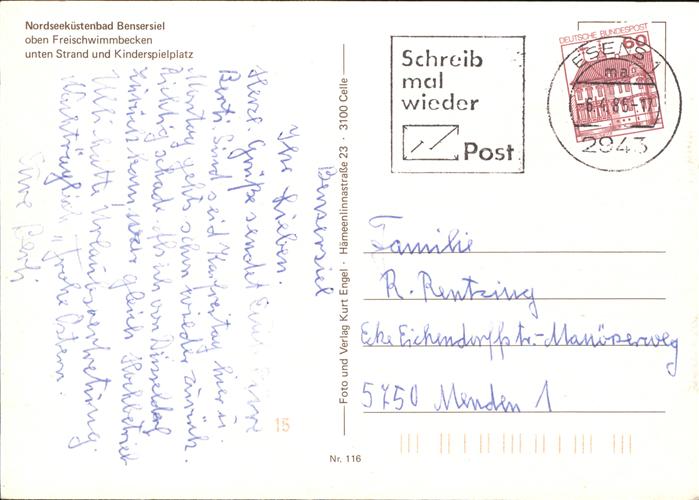 Nordseeküstenbad Bensersiel
oben Freischwimmbecken
unten Strand und Kinderspielplatz
Bensersiel
Ihr Lieben.
Herzl. Grüße sendet Euch Eure
Berti. Sind seid Karfreitag hier u.
Montag gehts schon wieder zurück.
Richtig schade. Als ich von Düsseldorf
zurück kam, war gleich Hochbetrieb
Ulli hatte Urlaubsvertretung.
Nachträglich "frohe Ostern.
Eure Berti
Foto und Verlag Kurt Engel · Hämeenlinnastraße 23 · 3100 Celle
Schreib
mal
wieder
Post
DEUTSCHE BUNDESPOST
60
ESENS
ma
-6.4.86-17
2943
Familie
R. Rentzing
Ecke Eichendorffstr.-Manöverweg
5750 Menden 1
15
Nr. 116